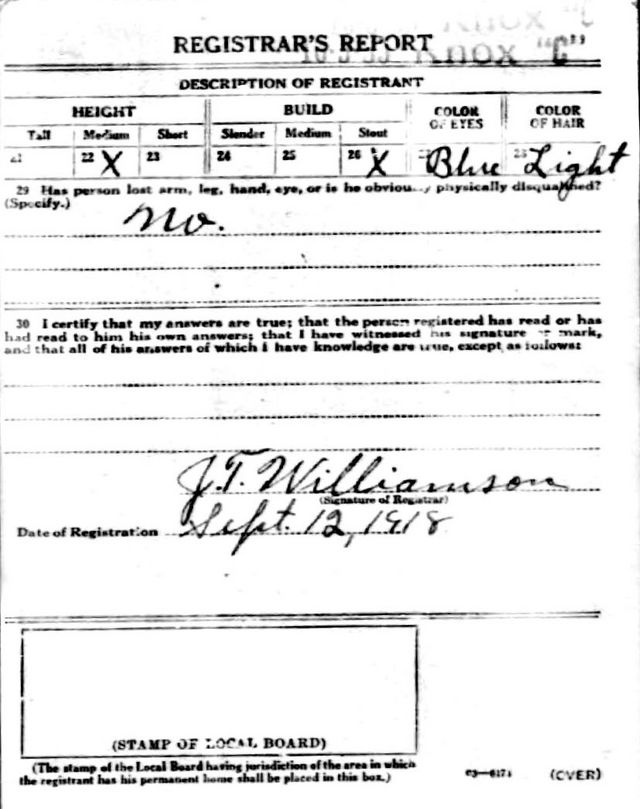 REGISTRAR'S REPORT
Knox "C"
DESCRIPTION OF REGISTRANT
HEIGHT BUILD COLOR OF EYES COLOR OF HAIR
Tall Medium Short Slender Medium Stout
21 22 X 23 24 25 26 X Blue Light
29 Has person lost arm, leg, hand, eye, or is he obviously physically disqualified?
(Specify.)
No.
30 I certify that my answers are true; that the person registered has read or has
had read to him his own answers; that I have witnessed his signature or mark,
and that all of his answers of which I have knowledge are true, except as follows:
J.T. Williamson
(Signature of Registrar)
Date of Registration Sept. 12, 1918
(STAMP OF LOCAL BOARD)
(The stamp of the Local Board having jurisdiction of the area in which
the registrant has his permanent home shall be placed in this box.)
03—6171 (OVER)